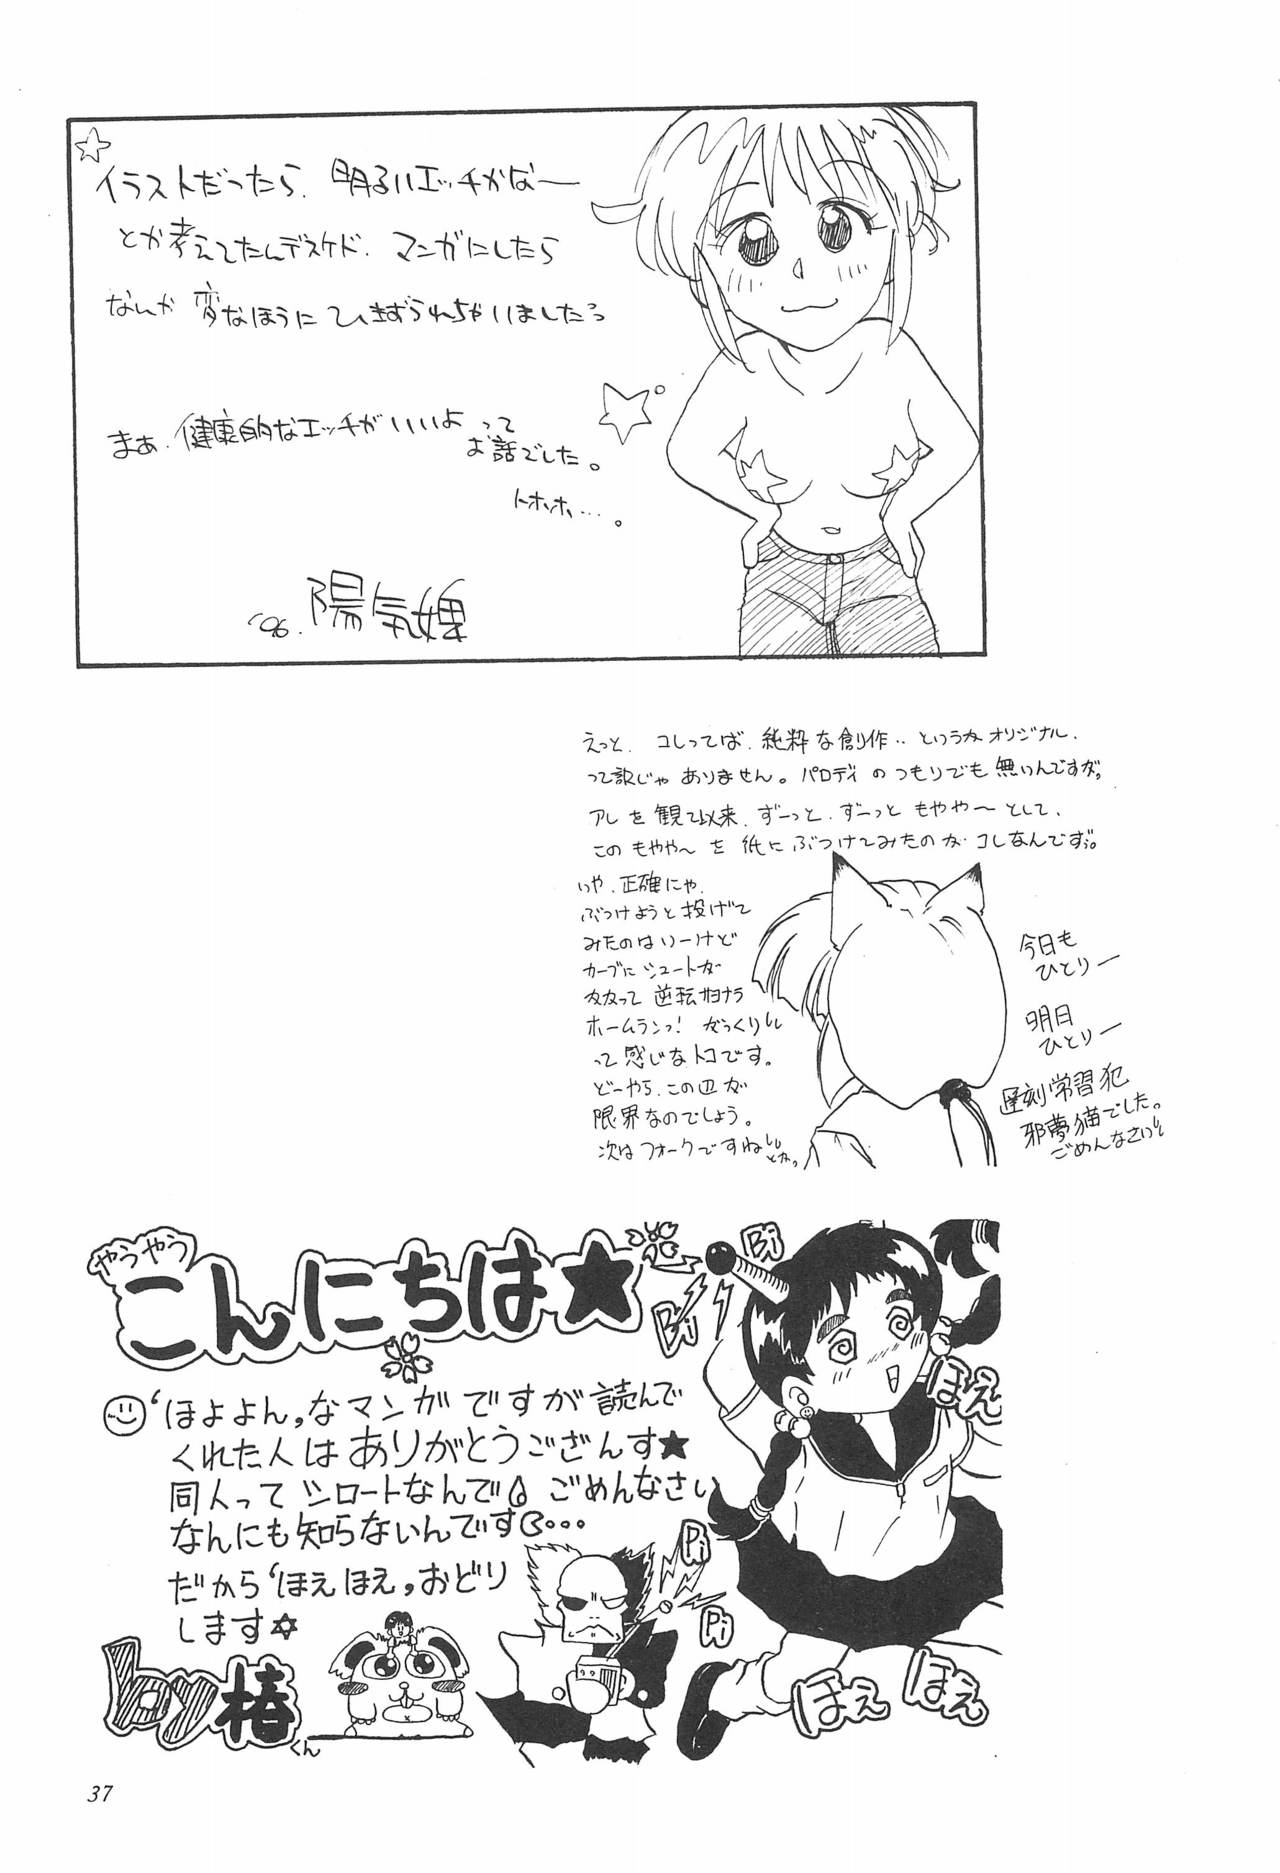 イラストだったら、明るいエッチかなー
とか考えてたんデスケド、マンガにしたら
なんか変なほうにひきずられちゃいましたっ
まぁ、健康的なエッチがいいよって
お話でした。
トホホ…。
'96. 陽気婢
えっと、コレってば、純粋な創作‥というかオリジナル、
って訳じゃありません。パロディのつもりでも無いんですが。
アレを観て以来、ずーっと、ずーっともやや〜として、
このもやや〜を紙にぶつけてみたのがコレなんですが。
いや、正確にゃ、
ぶつけようと投げて
みたのはいーけど
カーブにシュートが
かかって逆転サヨナラ
ホームランっ!がっくりしし
って感じなトコです。
どーやら、この辺が
限界なのでしょう。
次はフォークですねしし
とか。
今日も
ひとりー
明日
ひとりー
遅刻常習犯
邪夢猫でした。
ごめんなさいし
やうやう
こんにちは★
'ほよよん,なマンガですが読んで
くれた人はありがとうござんす★
同人ってシロートなんで ごめんなさい
なんにも知らないんです…
だから'ほえほえ,おどり
します☆
by 椿
くん
Bi
Bi
Pi
Pi
ほえ
ほえ
ほえ
37